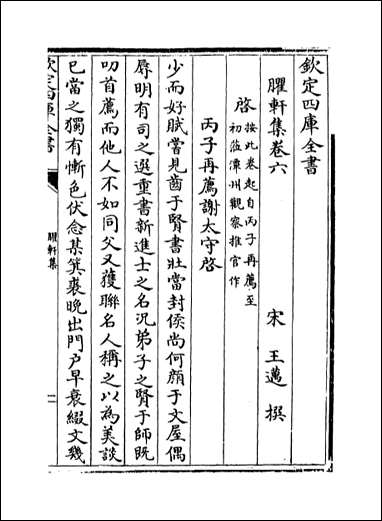 欽定四庫全書
臞軒集卷六
宋 王邁 撰
啓
按此卷起自丙子再薦至
初蒞潭州觀察推官作
丙子再薦謝太守啓
少而好賦嘗見齒于賢書壯當封侯尚何顔于文屋偶
辱明有司之選重書新進士之名況弟子之賢于師既
叨首薦而他人不如同父又獲聯名人稱之以為美談
已當之獨有慚色伏念某箕裘晚出門戶早衰綴文幾
欽定四庫全書
臞軒集